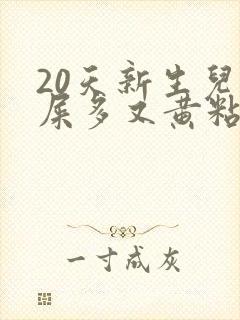 20天新生兒
屎多又黃粘
一寸成灰